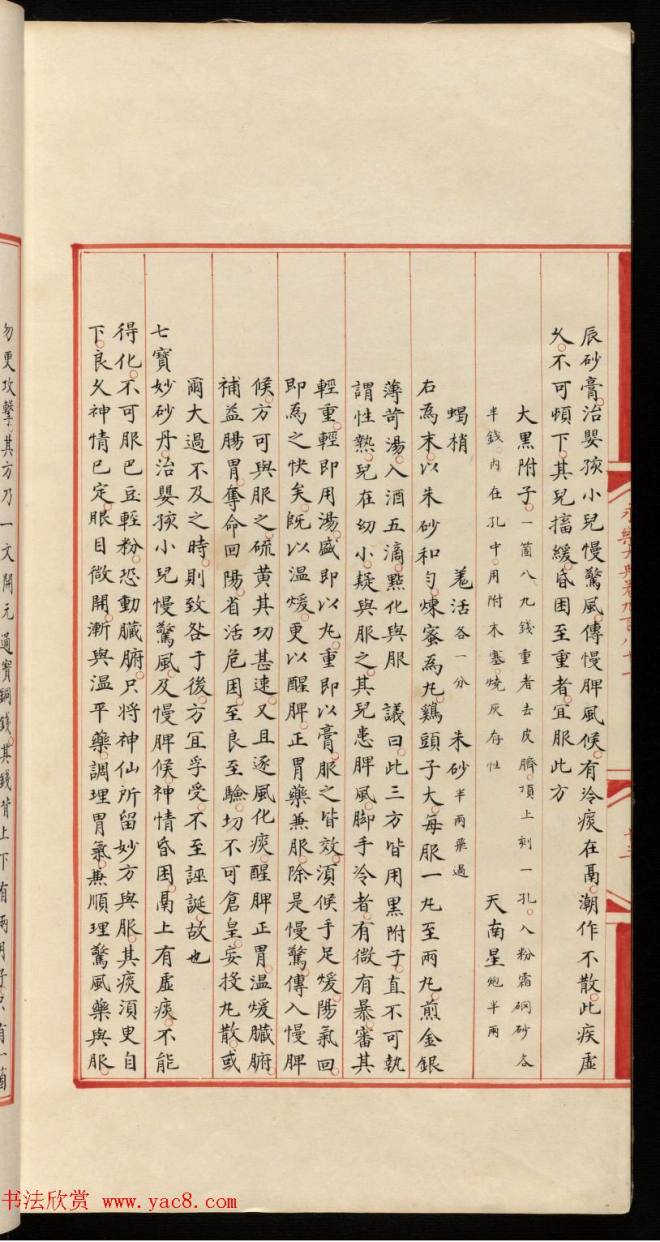 辰砂膏治嬰孩小兒慢驚風傳慢脾風候有冷痰在鬲潮作不散此疾虛
久不可頓下其兒搐緩昏困至重者宜服此方
大黑附子一箇八九錢重者去皮臍頂上刻一孔入粉霜硇砂各
半錢內在孔中用附末塞燒灰存性
天南星炮半兩
蝎梢 羗活各一分 朱砂半兩飛過
右為末以朱砂和勻煉蜜為丸鷄頭子大每服一丸至兩丸煎金銀
薄荷湯入酒五滴點化與服 議曰此三方皆用黑附子直不可執
謂性熱兒在幼小疑與服之其兒患脾風脚手冷者有微有暴審其
輕重輕即用湯盛即以丸重即以膏服之皆效須候手足煖陽氣回
即為之快矣既以溫煖更以醒脾正胃藥兼服除是慢驚傳入慢脾
候方可與服之硫黃其功甚速又且逐風化痰醒脾正胃溫煖臟腑
補益腸胃奪命回陽省活危困至良至驗切不可倉皇妄投丸散或
爾大過不及之時則致咎于後方宜孚受不至誣誕故也
七寶妙砂丹治嬰孩小兒慢驚風及慢脾候神情昏困鬲上有虛痰不能
得化不可服巴豆輕粉恐動臟腑只將神仙所留妙方與服其痰須臾自
下良久神情已定眼目微開漸與溫平藥調理胃氣兼順理驚風藥與服
勿更攻擊其方乃一文開元通寶銅錢其錢背上下有兩月子只有一箇
永樂大典卷九百八十一
十三
书法欣赏 www.yac8.com